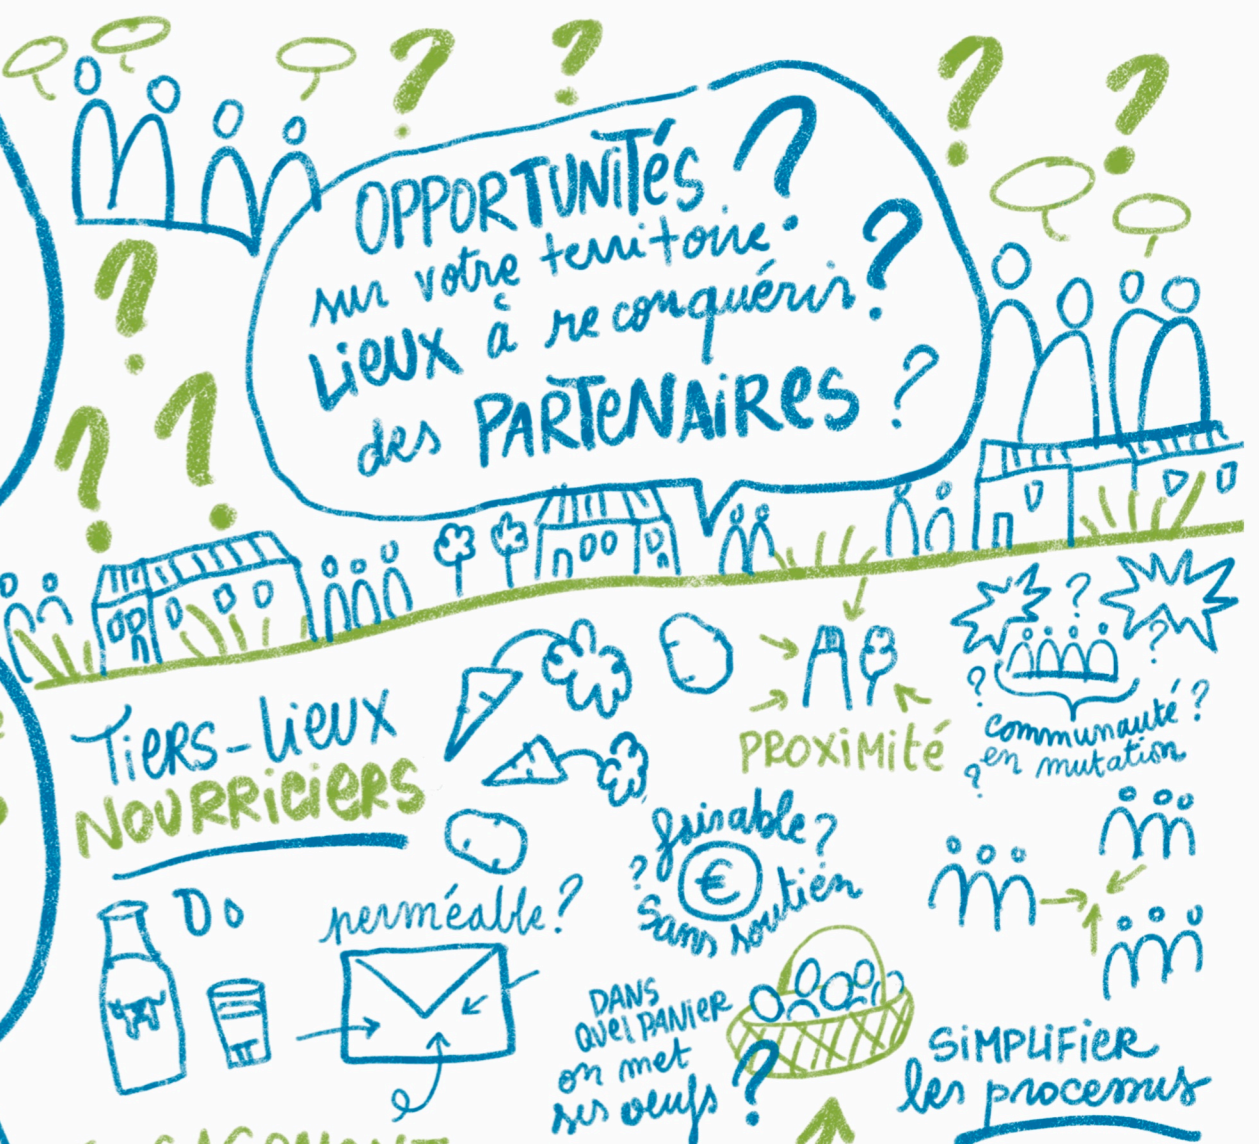 OPPORTUNités ?
sur votre territoire
Lieux à reconquérir ?
des PARTENAiRes ?
Tiers-lieux
NOURRiCiERS
PROXiMité
communauté ?
en mutation
faisable ?
€
sans soutien
perméable ?
DANS
QUEL PANiER
on met
ses oeufs ?
SiMPLiFiER
les processus